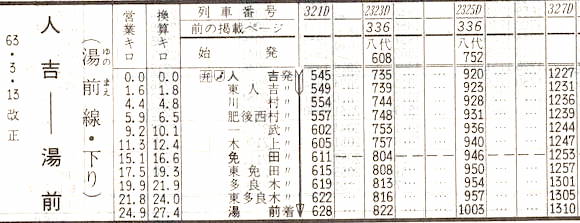 63・3・13改正
人吉——湯前
(湯前線・下り)
ゆの まえ
営業キロ 換算キロ 列車番号 321D … 2323D … 2325D … 327D
前の掲載ページ 336 336
始発 八代 608 八代 752
0.0 0.0 人吉発 545 … 735 … 920 … 1227
1.6 1.8 東人吉〃 549 … 739 … 923 … 1231
4.4 4.8 川村〃 554 … 744 … 928 … 1236
5.9 6.5 肥後西村〃 557 … 748 … 931 … 1239
9.2 10.1 一武〃 602 … 753 … 936 … 1244
11.3 12.4 木上〃 605 … 757 … 940 … 1247
15.1 16.6 免田〃 611 — 804 — 946 — 1253
17.5 19.3 東免田〃 615 … 808 … 950 … 1257
19.9 21.9 多良木〃 619 … 813 … 954 … 1301
21.8 24.0 東多良木〃 622 … 816 … 957 … 1305
24.9 27.4 湯前着 628 … 822 … 1003 … 1310